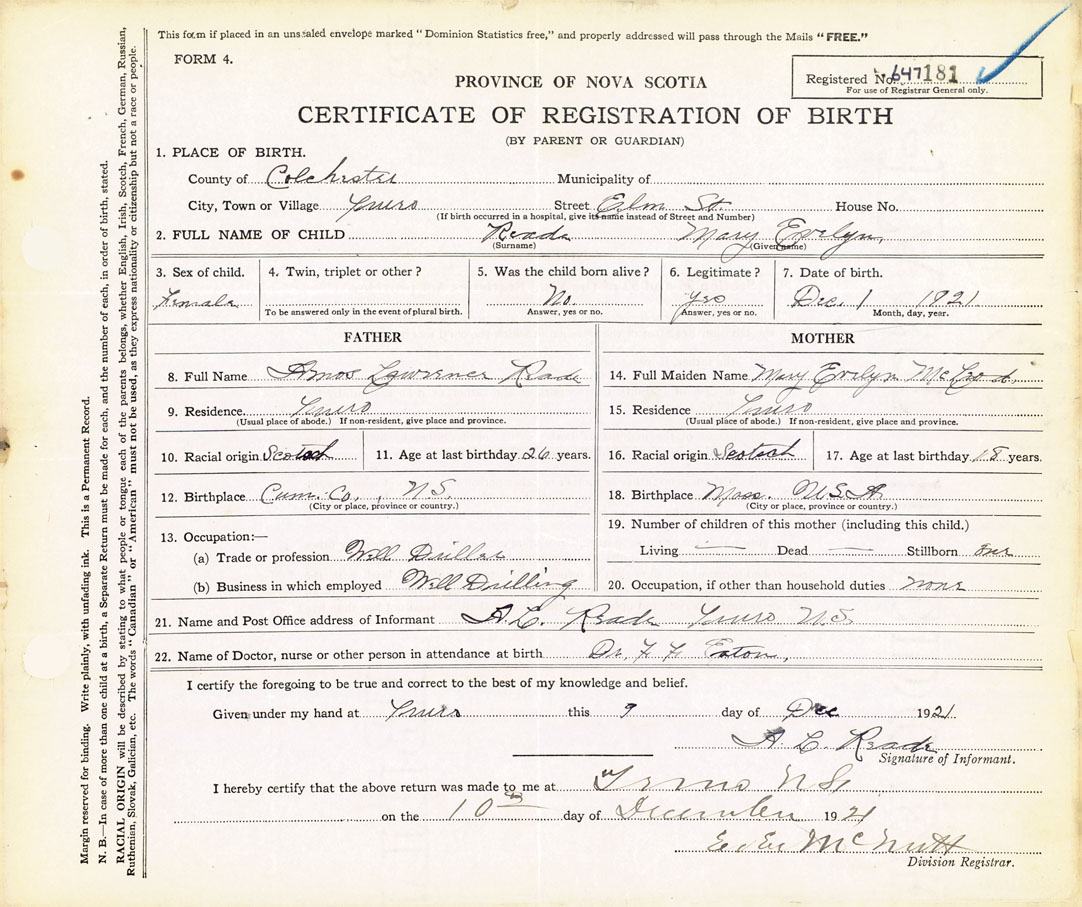 This form if placed in an unsealed envelope marked "Dominion Statistics free," and properly addressed will pass through the Mails "FREE."
FORM 4.
Registered No. 647181
For use of Registrar General only.
PROVINCE OF NOVA SCOTIA
CERTIFICATE OF REGISTRATION OF BIRTH
(BY PARENT OR GUARDIAN)
1. PLACE OF BIRTH.
County of Colchester Municipality of
City, Town or Village Truro Street Elm St. House No.
(If birth occurred in a hospital, give its name instead of Street and Number)
2. FULL NAME OF CHILD Reade Mary Evelyn
(Surname) (Given name)
3. Sex of child. 4. Twin, triplet or other? 5. Was the child born alive? 6. Legitimate? 7. Date of birth.
Female No. Yes Dec. 1 1921
To be answered only in the event of plural birth. Answer, yes or no. Answer, yes or no. Month, day, year.
FATHER MOTHER
8. Full Name Amos Lawrence Reade 14. Full Maiden Name Mary Evelyn
9. Residence. Truro 15. Residence Truro
(Usual place of abode.) If non-resident, give place and province. (Usual place of abode.) If non-resident, give place and province.
10. Racial origin Scotch 11. Age at last birthday 26 years. 16. Racial origin Scotch 17. Age at last birthday 18 years.
12. Birthplace Cum. Co., N.S. 18. Birthplace Mass. U.S.A
(City or place, province or country.) (City or place, province or country.)
13. Occupation:— 19. Number of children of this mother (including this child.)
(a) Trade or profession Well Driller Living — Dead — Stillborn one
(b) Business in which employed Well Drilling 20. Occupation, if other than household duties none
21. Name and Post Office address of Informant A. L. Reade Truro N.S.
22. Name of Doctor, nurse or other person in attendance at birth Dr. F F Eaton,
I certify the foregoing to be true and correct to the best of my knowledge and belief.
Given under my hand at Truro this 9 day of Dec 1921
A. L. Reade
Signature of Informant.
I hereby certify that the above return was made to me at Truro N.S.
on the 10th day of December 1921
McNutt
Division Registrar.
Margin reserved for binding. Write plainly, with unfading ink. This is a Permanent Record.
N. B.—In case of more than one child at a birth, a Separate Return must be made for each, and the number of each, in order of birth, stated.
RACIAL ORIGIN will be described by stating to what people or tongue each of the parents belongs, whether English, Irish, Scotch, French, German, Russian,
Ruthenian, Slovak, Galician, etc. The words "Canadian" or "American" must not be used, as they express nationality or citizenship but not a race or people.